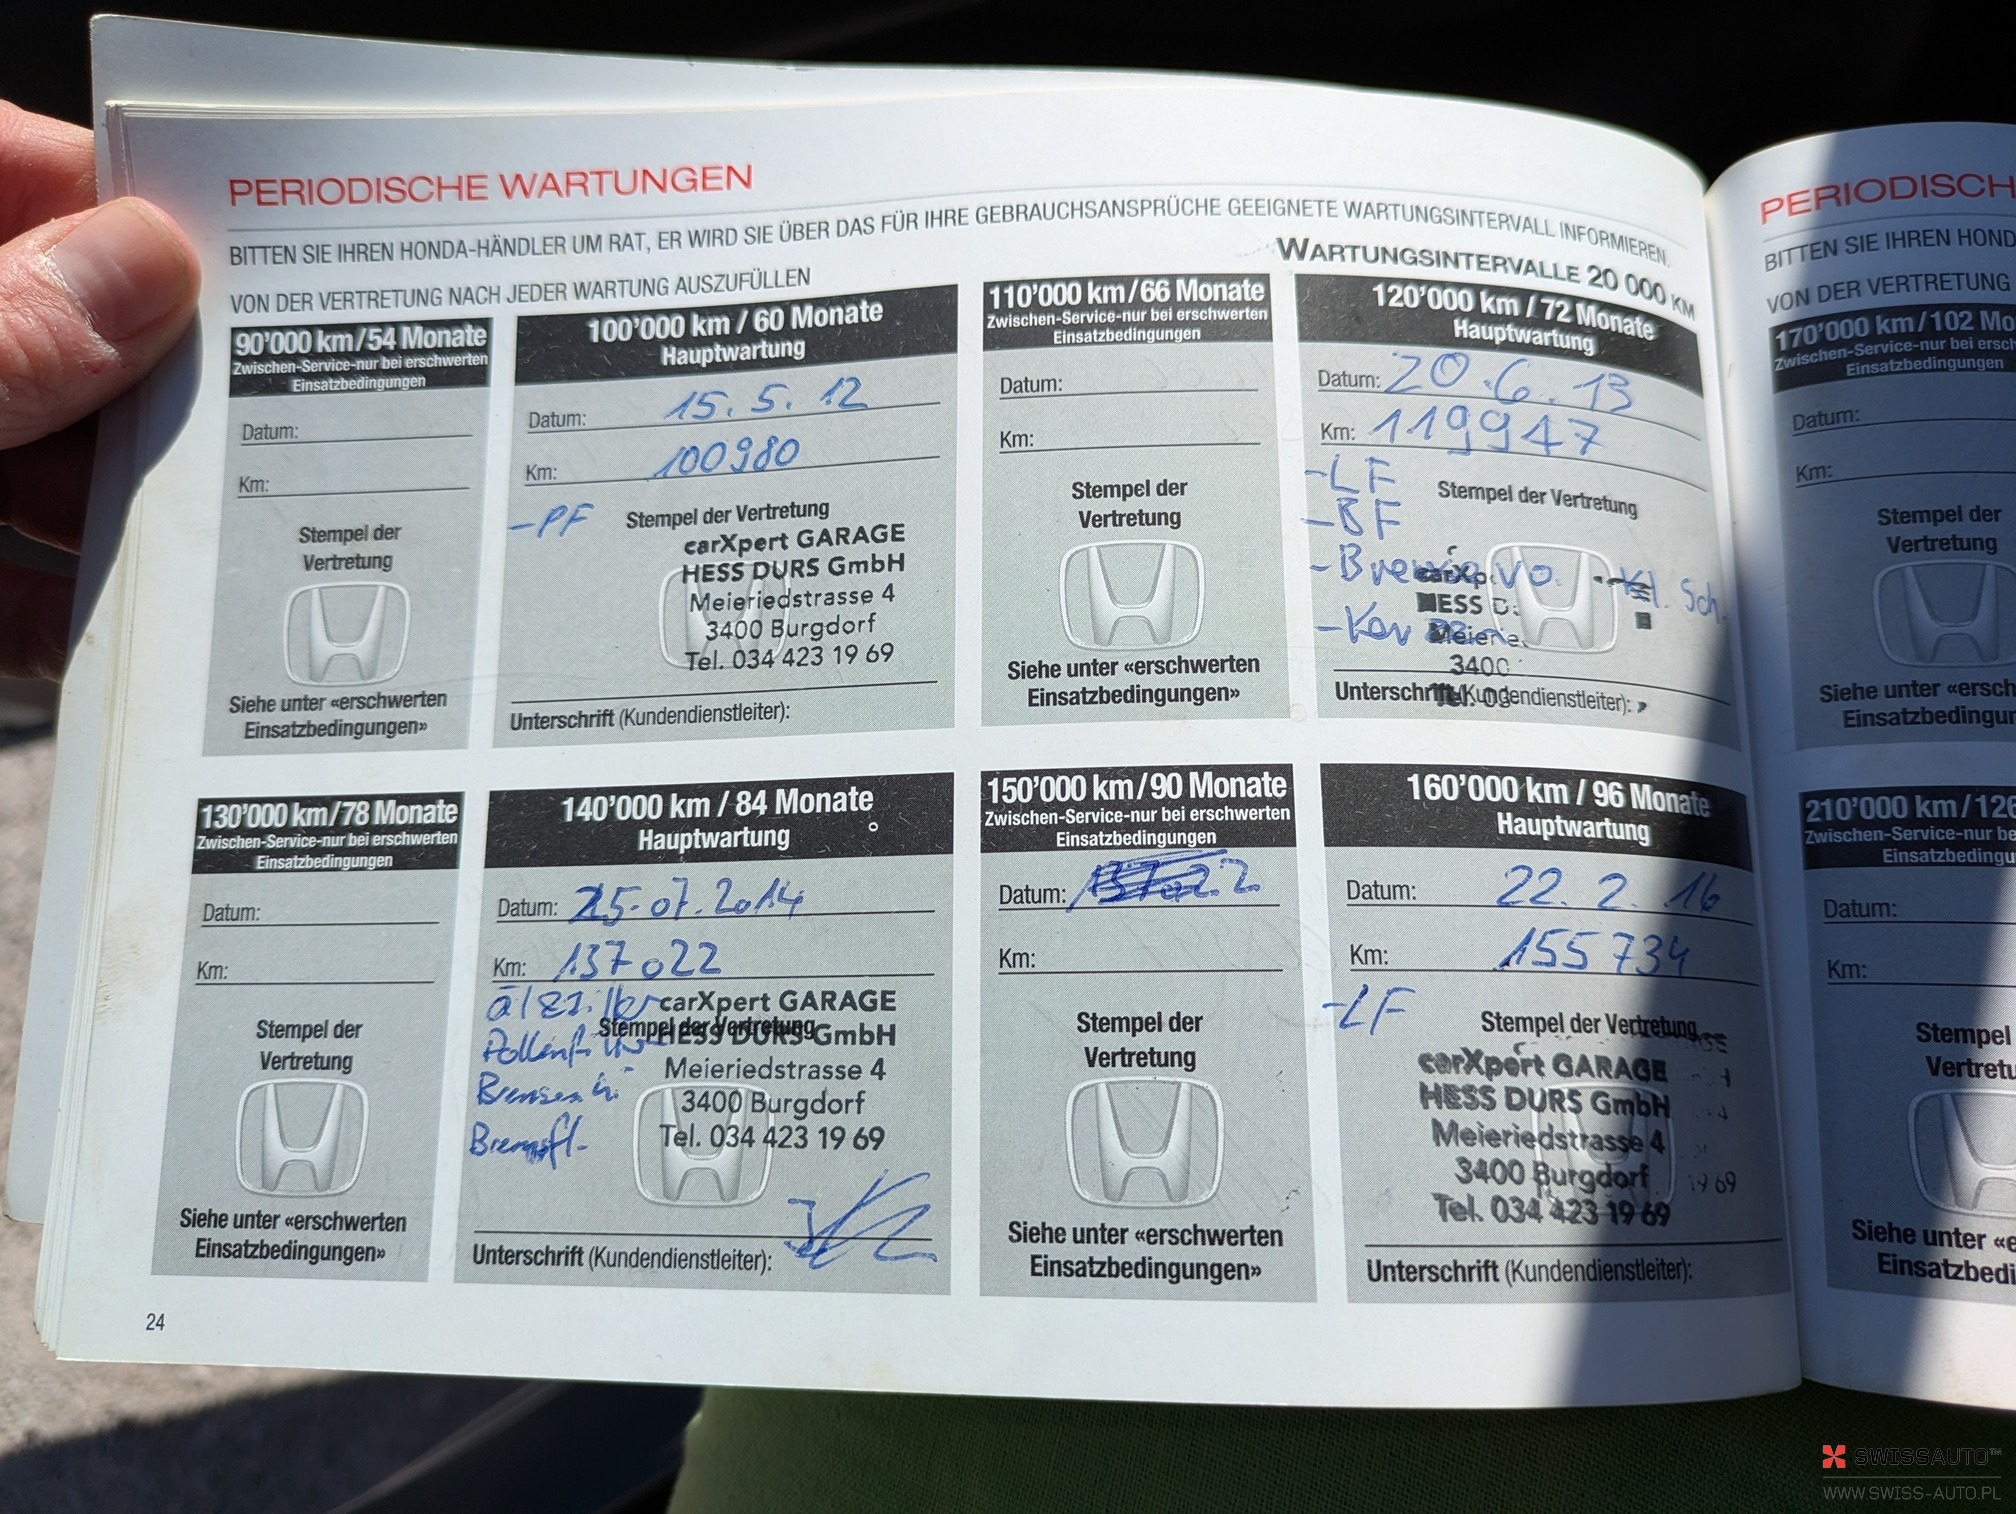 PERIODISCHE WARTUNGEN
BITTEN SIE IHREN HONDA-HÄNDLER UM RAT, ER WIRD SIE ÜBER DAS FÜR IHRE GEBRAUCHSANSPRÜCHE GEEIGNETE WARTUNGSINTERVALL INFORMIEREN.
WARTUNGSINTERVALLE 20 000 KM
VON DER VERTRETUNG NACH JEDER WARTUNG AUSZUFÜLLEN
90'000 km/54 Monate
Zwischen-Service-nur bei erschwerten
Einsatzbedingungen
Datum:
Km:
Stempel der
Vertretung
Siehe unter «erschwerten
Einsatzbedingungen»
100'000 km / 60 Monate
Hauptwartung
Datum: 15.5.12
Km: 100980
-PF
Stempel der Vertretung
carXpert GARAGE
HESS DURS GmbH
Meieriedstrasse 4
3400 Burgdorf
Tel. 034 423 19 69
Unterschrift (Kundendienstleiter):
110'000 km/66 Monate
Zwischen-Service-nur bei erschwerten
Einsatzbedingungen
Datum:
Km:
Stempel der
Vertretung
Siehe unter «erschwerten
Einsatzbedingungen»
120'000 km / 72 Monate
Hauptwartung
Datum: 20.6.13
Km: 119947
-LF
Stempel der Vertretung
-BF
3400
Unterschrift (Kundendienstleiter):
130'000 km/78 Monate
Zwischen-Service-nur bei erschwerten
Einsatzbedingungen
Datum:
Km:
Stempel der
Vertretung
Siehe unter «erschwerten
Einsatzbedingungen»
140'000 km / 84 Monate
Hauptwartung
Datum: 25.07.2014
Km: 137022
carXpert GARAGE
Stempel der Vertretung
HESS DURS GmbH
Meieriedstrasse 4
3400 Burgdorf
Bremsfl.
Tel. 034 423 19 69
Unterschrift (Kundendienstleiter):
150'000 km/90 Monate
Zwischen-Service-nur bei erschwerten
Einsatzbedingungen
Datum:
Km:
Stempel der
Vertretung
Siehe unter «erschwerten
Einsatzbedingungen»
160'000 km / 96 Monate
Hauptwartung
Datum: 22.2.16
Km: 155734
-LF
Stempel der Vertretung
carXpert GARAGE
HESS DURS GmbH
Meieriedstrasse 4
3400 Burgdorf
Tel. 034 423 19 69
Unterschrift (Kundendienstleiter):
24
PERIODISCH
BITTEN SIE IHREN HOND
VON DER VERTRETUNG
170'000 km/102 Mo
Zwischen-Service-nur bei ersch
Einsatzbedingungen
Datum:
Km:
Stempel der
Vertretung
Siehe unter «ersch
Einsatzbedingun
210'000 km/126
Zwischen-Service-nur be
Einsatzbedingu
Datum:
Km:
Stempel
Vertretu
Siehe unter «e
Einsatzbedi
SWISSAUTO™
WWW.SWISS-AUTO.PL